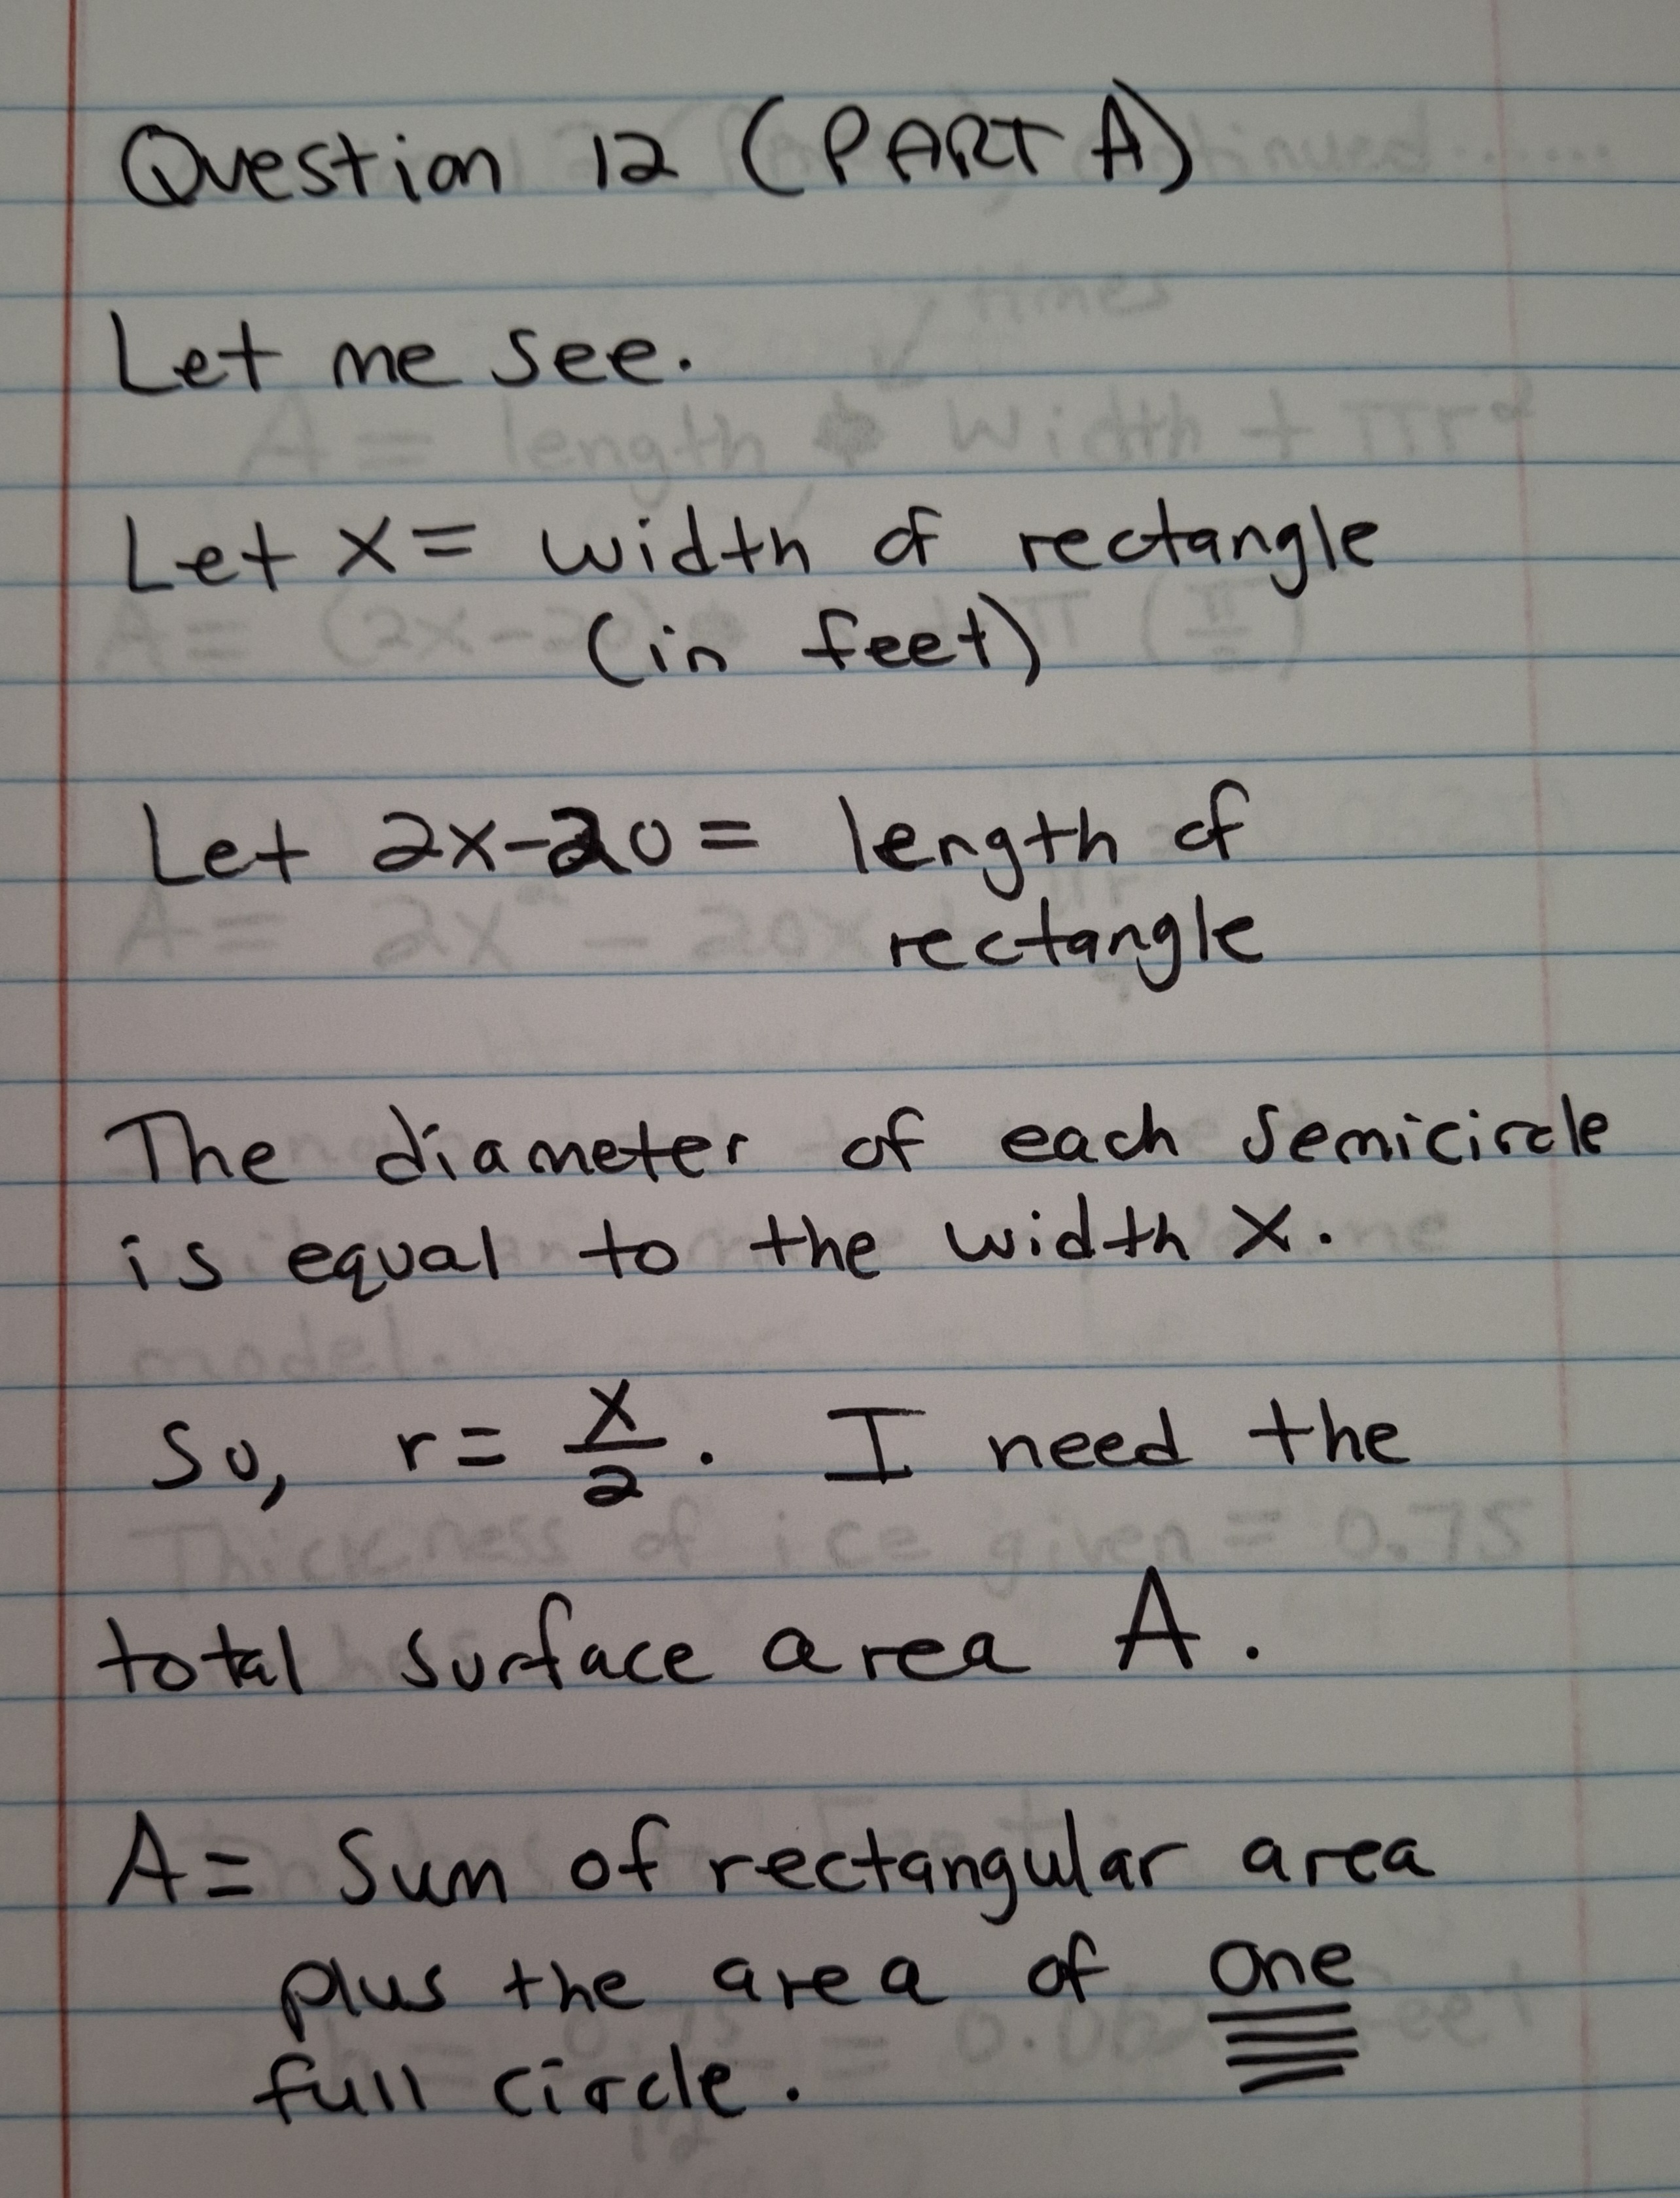 Question 12 (PART A)
Let me see.
Let x = width of rectangle
(in feet)
Let 2x-20 = length of
rectangle
The diameter of each semicircle
is equal to the width X.
So, r = x/2. I need the
total surface area A.
A = Sum of rectangular area
plus the area of one
full circle.